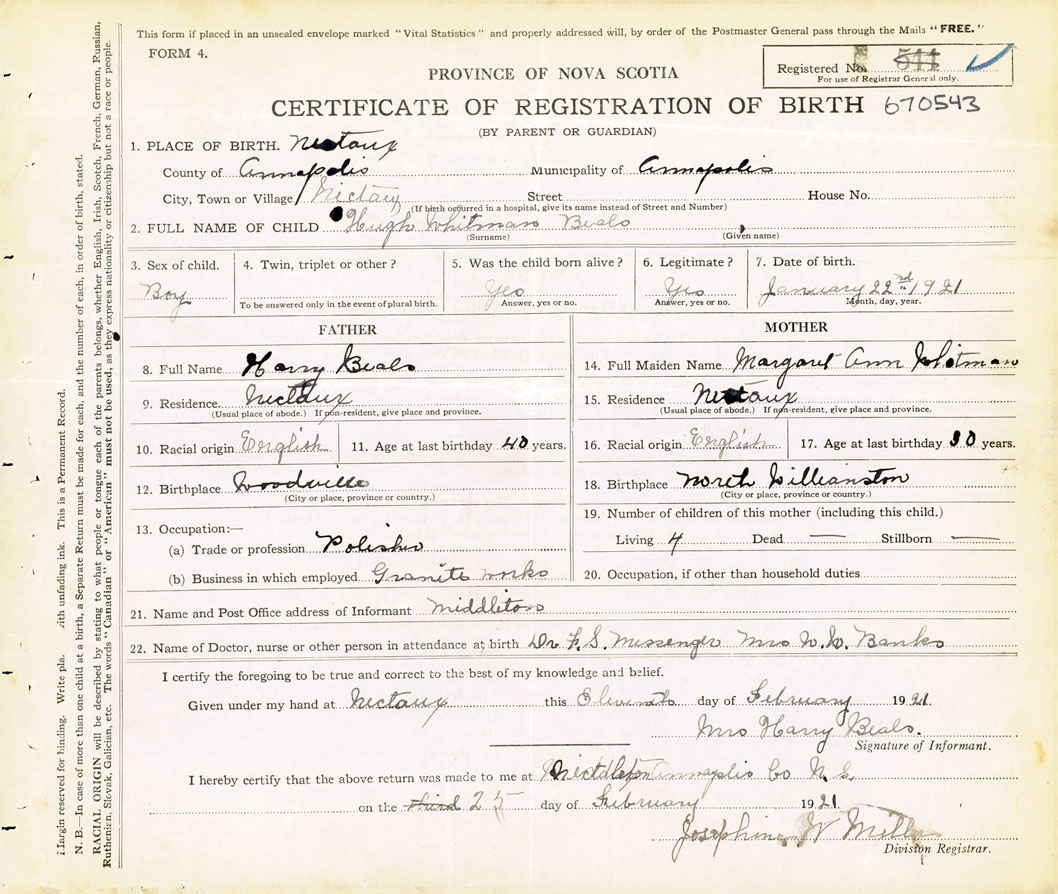 This form if placed in an unsealed envelope marked "Vital Statistics" and properly addressed will, by order of the Postmaster General pass through the Mails "FREE."
FORM 4.
Registered No. 544
For use of Registrar General only.
PROVINCE OF NOVA SCOTIA
CERTIFICATE OF REGISTRATION OF BIRTH 670543
(BY PARENT OR GUARDIAN)
1. PLACE OF BIRTH. Nictaux
County of Annapolis Municipality of Annapolis
City, Town or Village Nictaux Street House No.
(If birth occurred in a hospital, give its name instead of Street and Number)
2. FULL NAME OF CHILD Hugh Whitman Beals
(Surname) (Given name)
3. Sex of child. 4. Twin, triplet or other? 5. Was the child born alive? 6. Legitimate? 7. Date of birth.
Boy Yes Yes January 22nd 1921
To be answered only in the event of plural birth. Answer, yes or no. Answer, yes or no. Month, day, year.
FATHER
8. Full Name Harry Beals
9. Residence Nictaux
(Usual place of abode.) If non-resident, give place and province.
10. Racial origin English 11. Age at last birthday 40 years.
12. Birthplace Woodville
(City or place, province or country.)
13. Occupation:—
(a) Trade or profession Polisher
(b) Business in which employed Granite works
MOTHER
14. Full Maiden Name Margaret Ann Whitman
15. Residence Nictaux
(Usual place of abode.) If non-resident, give place and province.
16. Racial origin English 17. Age at last birthday 30 years.
18. Birthplace North Willianston
(City or place, province or country.)
19. Number of children of this mother (including this child.)
Living 4 Dead — Stillborn —
20. Occupation, if other than household duties
21. Name and Post Office address of Informant Middleton
22. Name of Doctor, nurse or other person in attendance at birth Dr F. S. Messenger Mrs Banks
I certify the foregoing to be true and correct to the best of my knowledge and belief.
Given under my hand at Nictaux this Eleventh day of February 1921
Mrs Harry Beals.
Signature of Informant.
I hereby certify that the above return was made to me at Middleton Annapolis Co N.S.
on the third 25 day of February 1921
Josephine W Miller
Division Registrar.
Margin reserved for binding. Write with unfading ink. This is a Permanent Record.
N. B.—In case of more than one child at a birth, a Separate Return must be made for each, and the number of each, in order of birth, stated.
RACIAL ORIGIN will be described by stating to what people or tongue each of the parents belongs, whether English, Irish, Scotch, French, German, Russian,
Ruthenian, Slovak, Galician, etc. The words "Canadian" or "American" must not be used, as they express nationality or citizenship but not a race or people.